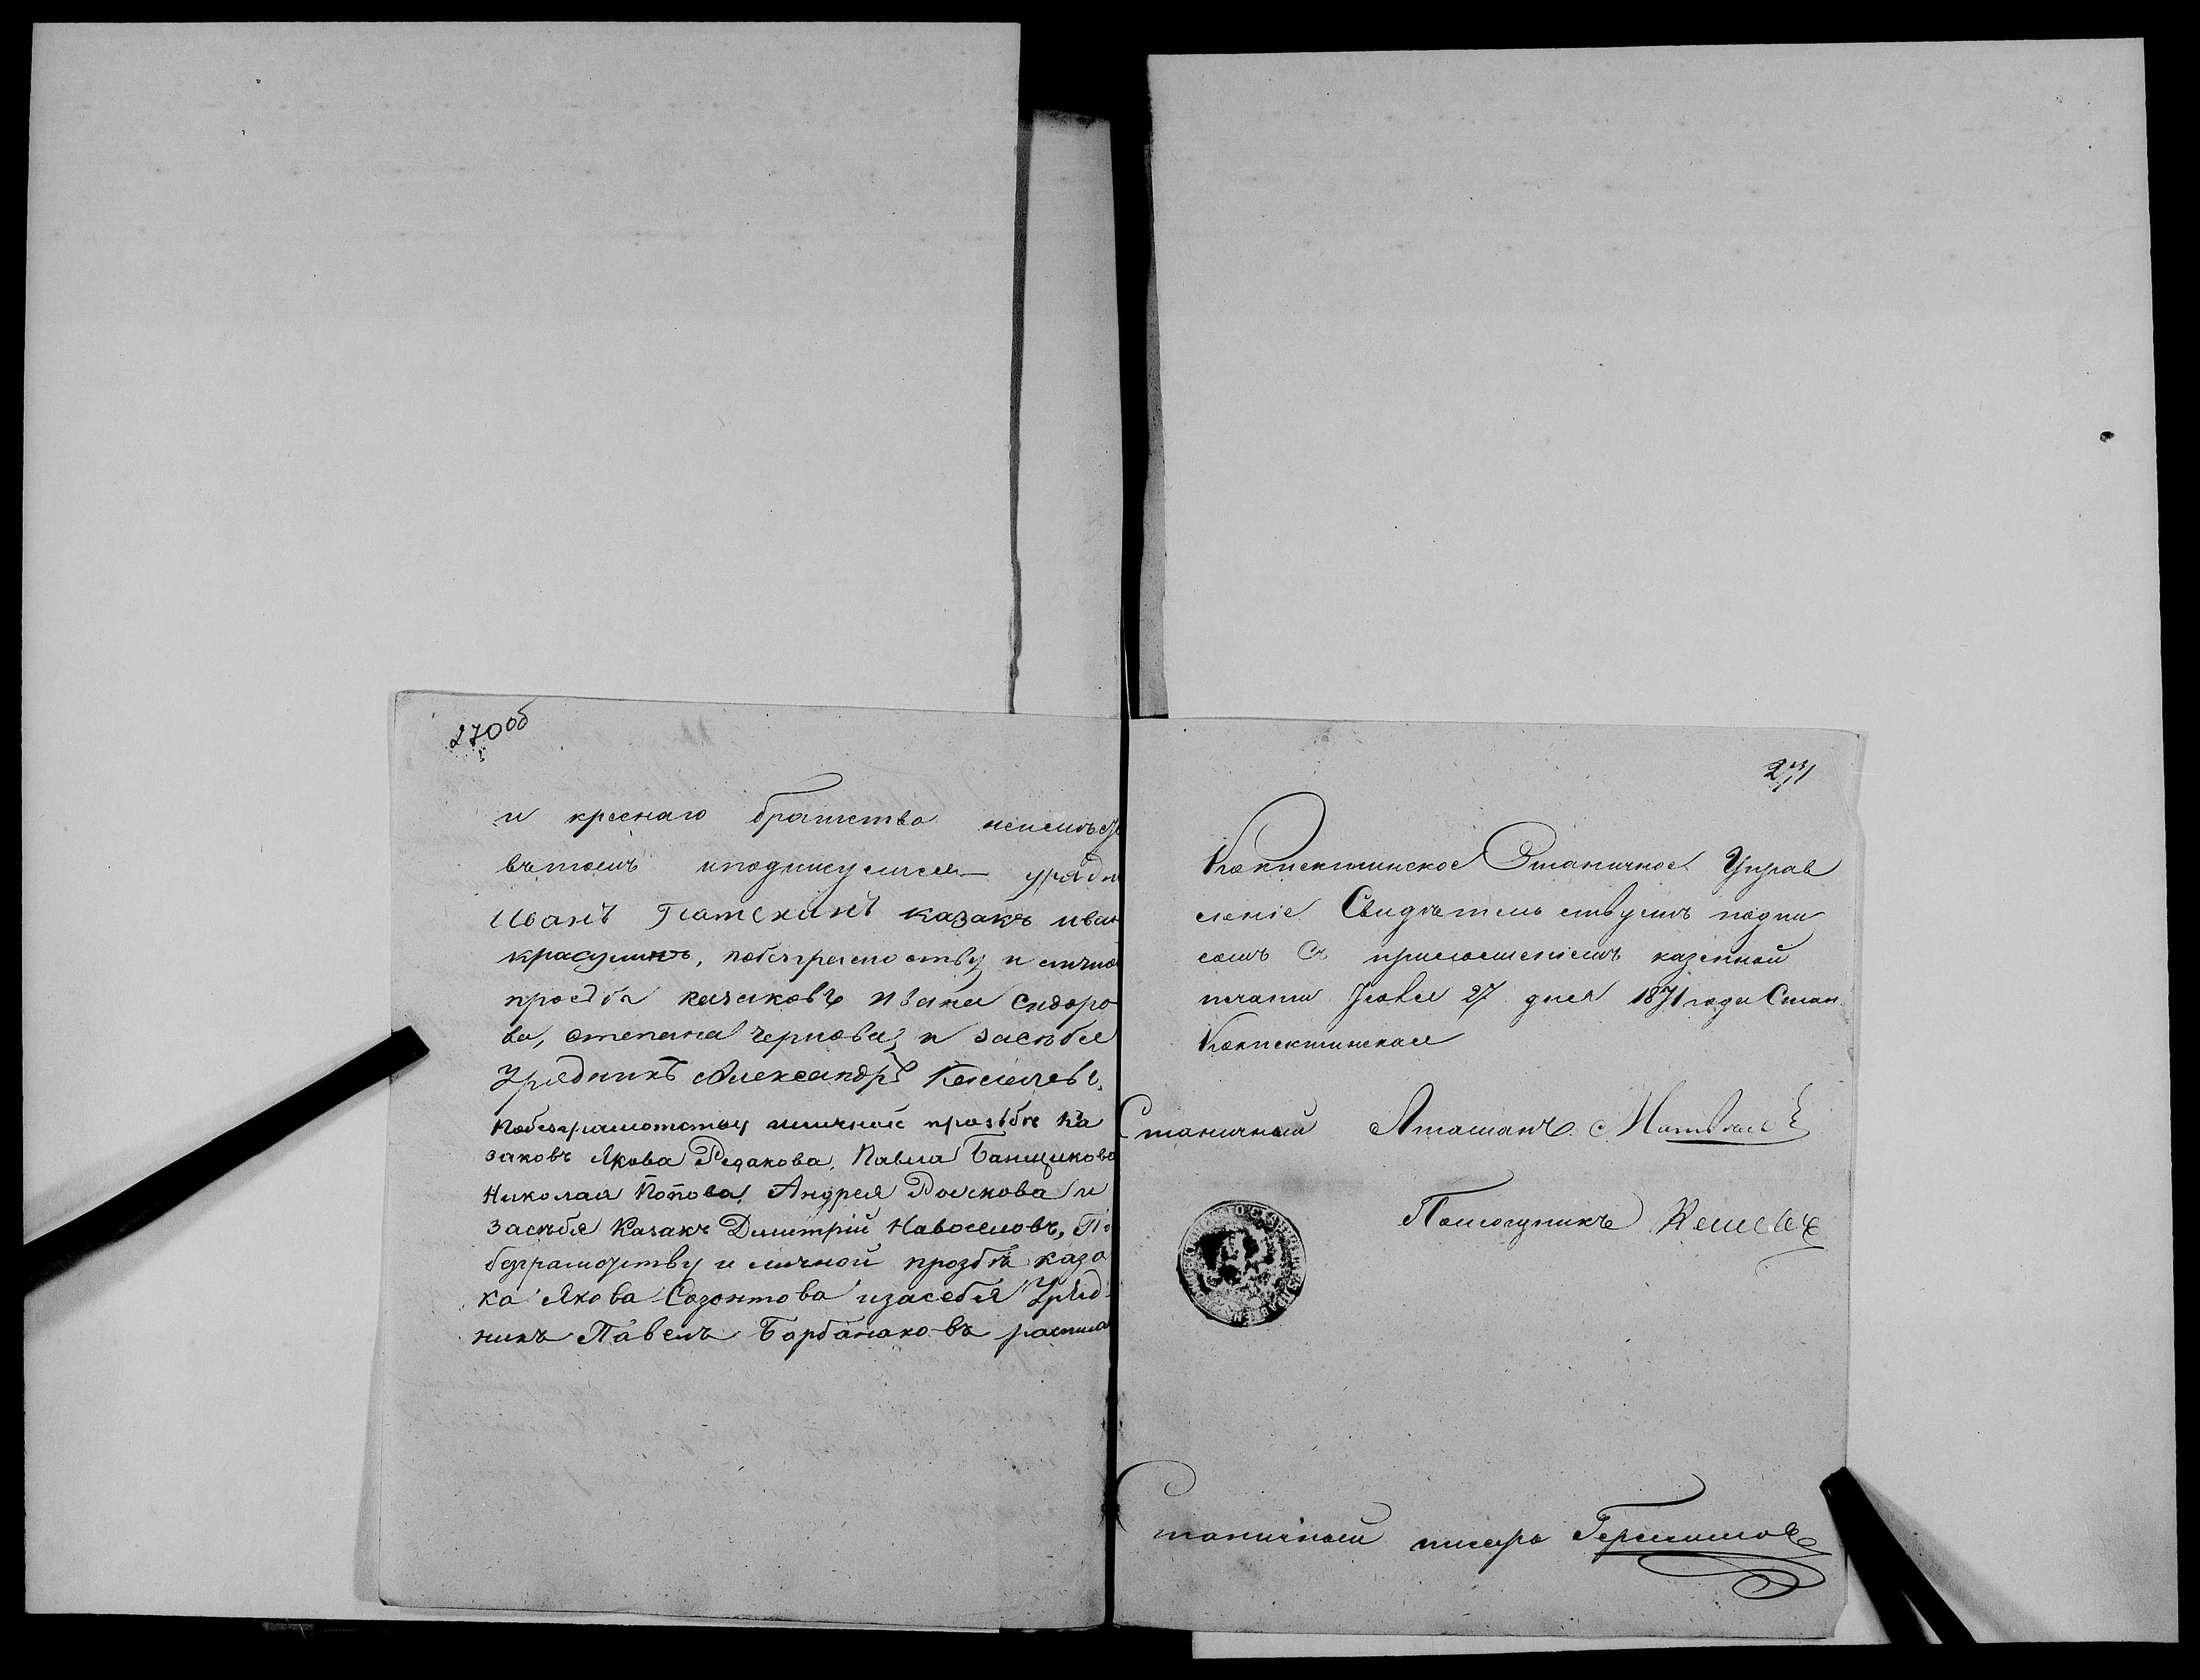 270 об
и креснаго братства неимѣе
вътомъ иподпишуемся урядн
Иванъ Патскинъ казакъ иван
красулинъ, побезграмотству и лично
просбѣ казаковъ Ивана Сидоро
ва, степана чернова, и засѣбя
Урядникъ Александръ
Побезграмотству иличной прозьбѣ ка
заковъ Якова Редакова, Павла Банщикова
Николая Попова, Андрея Волкова и
засѣбя Казакъ Димитрій Новоселовъ, По
безграмотству и личной прозбѣ каза
ка Якова Созонтова изасебя Уряд
никъ Павелъ росписа
271
Кокпектинское Станичное Управ
леніе Свидѣтельствуетъ подпи
сомъ съ приложеніемъ казенной
печати Іюля 27 дня 1871 года Стан.
Кокпектинская
Станичный Атаманъ Матвѣевъ
Помощникъ
Станичный писарь Герасимовъ